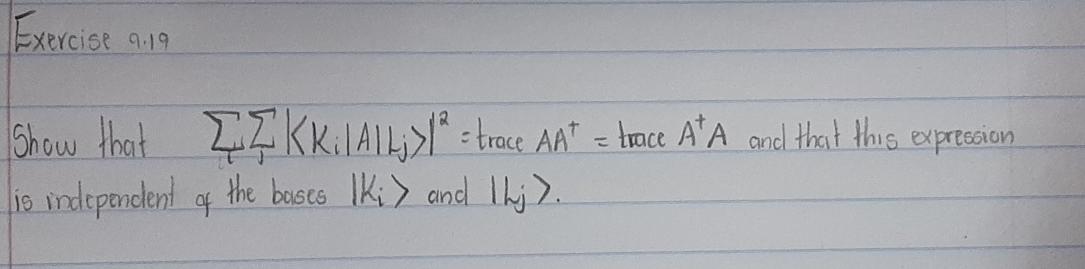 Exercise 9.19
Show that ∑i ∑j |<Ki|A|Lj>|² = trace AA† = trace A†A and that this expression
is independent of the bases |Ki> and |Lj>.